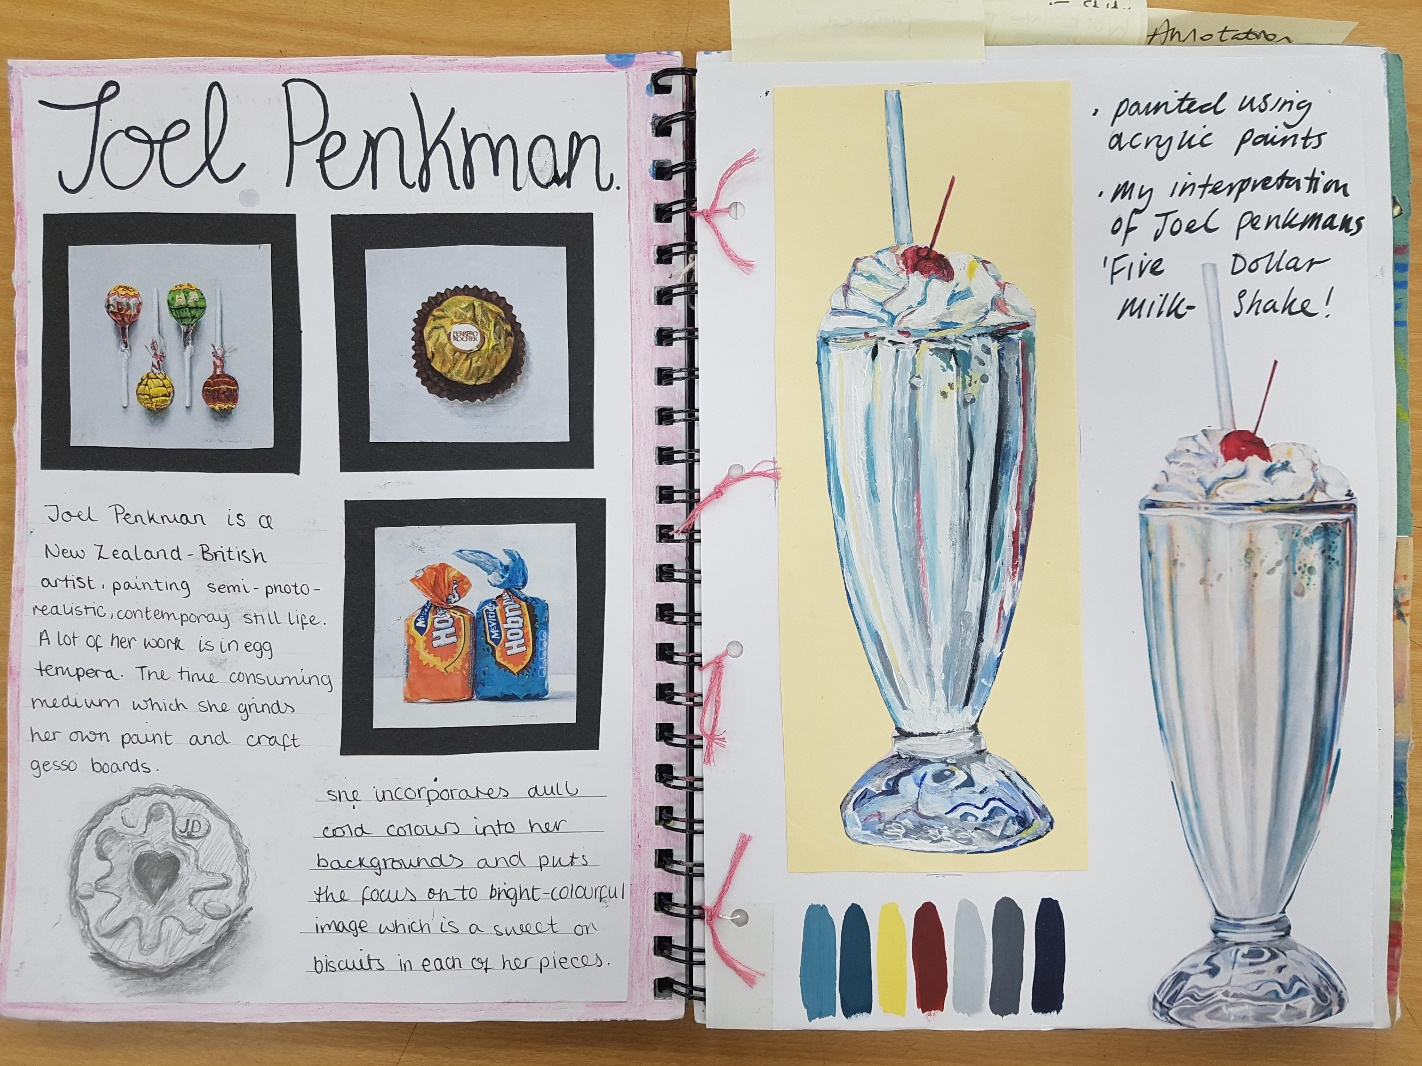 Annotation
Joel Penkman.
FERRERO
ROCHER
Joel Penkman is a
New Zealand-British
artist, painting semi-photo-
realistic, contemporay still life.
A lot of her work is in egg
tempera. The time consuming
medium which she grinds
her own paint and craft
gesso boards.
McVitie's
Hobn
JD
she incorporates dull
cold colours into her
backgrounds and puts
the focus on to bright-colourful
image which is a sweet or
biscuits in each of her pieces.
• painted using
acrylic paints
• my interpretation
of Joel penkmans
'Five Dollar
Milk- Shake!